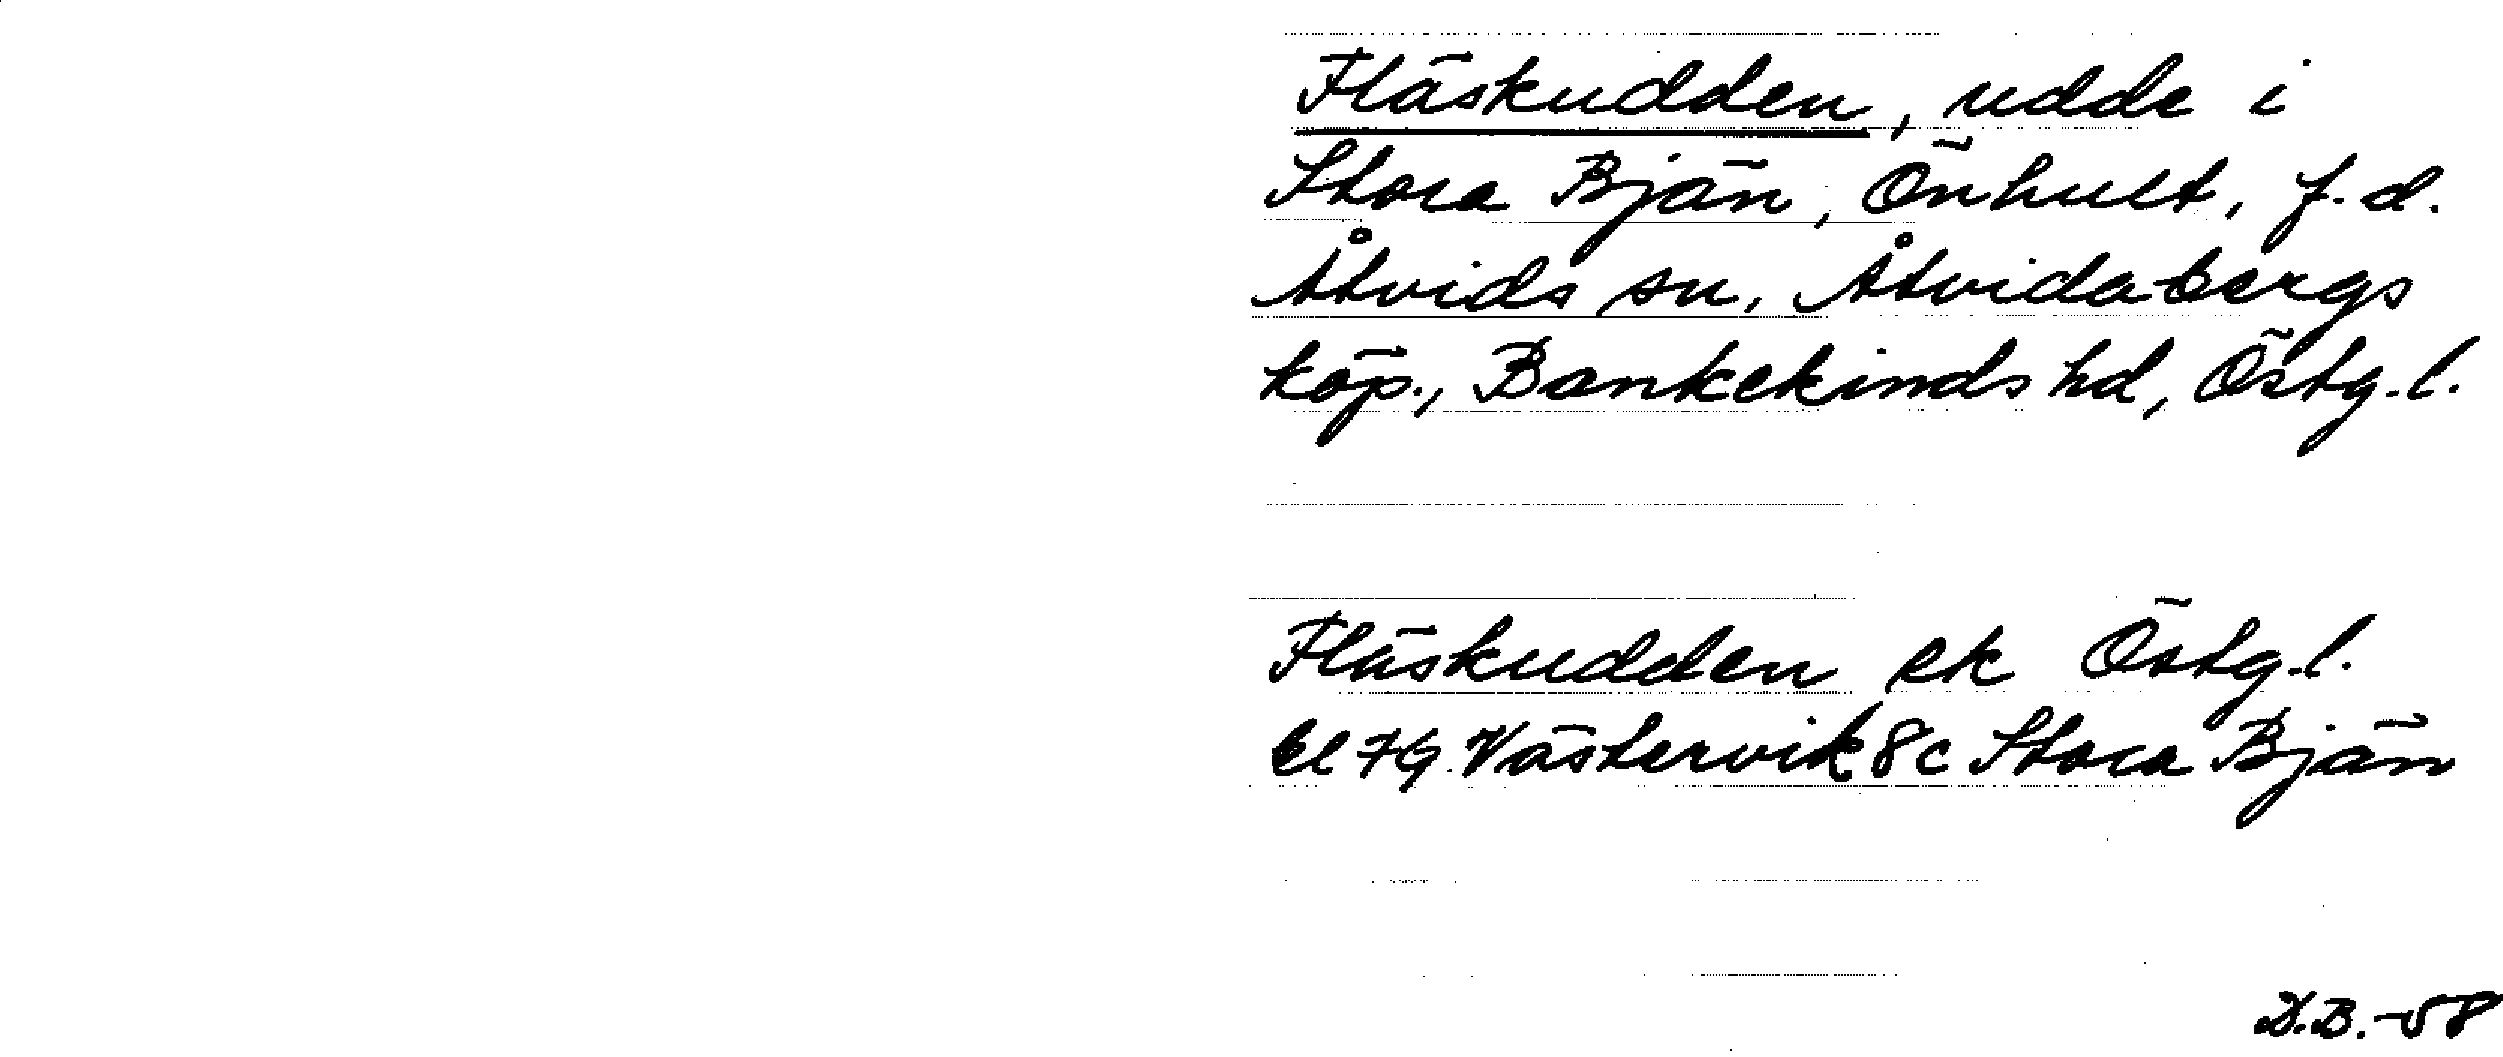 Fläskudden, udde i
Stora Bjän, Önhult, f.d.
Åtvids sn, Åtvidabergs
köp., Bankekinds hd, Östg.l.
Fläskudden ek Östg.l.
bl 79. Västervik 8c Stora Bjän
D.B.-58